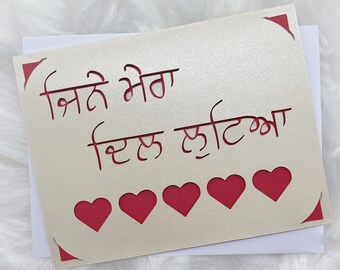 ਜਿਨੇ ਮੇਰਾ
ਦਿਲ ਲੁਟਿਆ